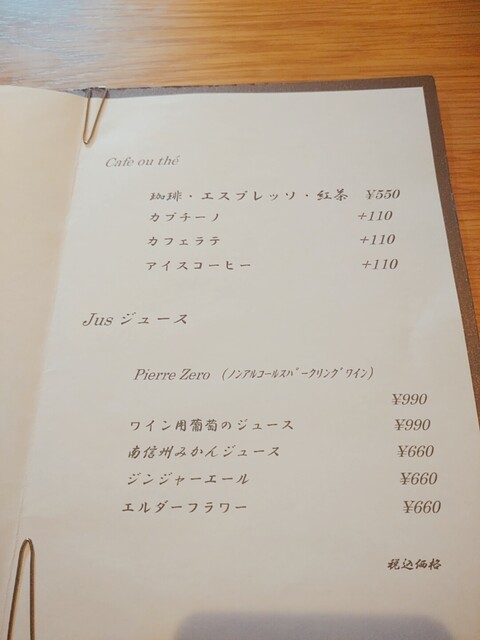 Cafe ou thé
珈琲・エスプレッソ・紅茶 ¥550
カプチーノ +110
カフェラテ +110
アイスコーヒー +110
Jus ジュース
Pierre Zero (ﾉﾝｱﾙｺｰﾙｽﾊﾟｰｸﾘﾝｸﾞﾜｲﾝ)
¥990
ワイン用葡萄のジュース ¥990
南信州みかんジュース ¥660
ジンジャーエール ¥660
エルダーフラワー ¥660
税込価格